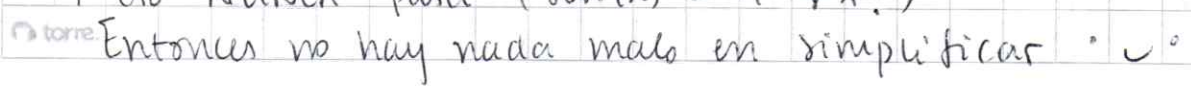 torre.
Entonces no hay nada malo en simplificar